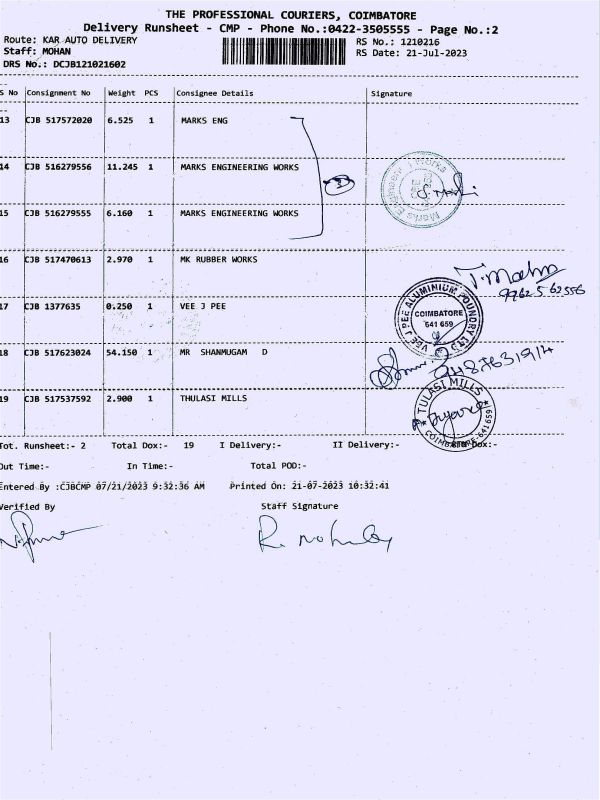 THE PROFESSIONAL COURIERS, COIMBATORE
Delivery Runsheet - CMP - Phone No.:0422-3505555 - Page No.:2
Route: KAR AUTO DELIVERY
RS No.: 1210216
Staff: MOHAN
RS Date: 21-Jul-2023
DRS No.: DCJB121021602
S No Consignment No Weight PCS Consignee Details Signature
13 CJB 517572020 6.525 1 MARKS ENG
14 CJB 516279556 11.245 1 MARKS ENGINEERING WORKS
3
Marks Engineering Works
15 CJB 516279555 6.160 1 MARKS ENGINEERING WORKS
16 CJB 517470613 2.970 1 MK RUBBER WORKS
T. Mohan
99625 62556
17 CJB 1377635 0.250 1 VEE J PEE
VEE J PEE ALUMINIUM FOUNDRY LTD
COIMBATORE
641 659
18 CJB 517623024 54.150 1 MR SHANMUGAM D
19 CJB 517537592 2.900 1 THULASI MILLS
TULASI MILLS
COIMBATORE-641659
Tot. Runsheet:- 2 Total Dox:- 19 I Delivery:- II Delivery:- Dox:-
Out Time:- In Time:- Total POD:-
Entered By :CJBCMP 07/21/2023 9:32:36 AM Printed On: 21-07-2023 10:32:41
Verified By Staff Signature